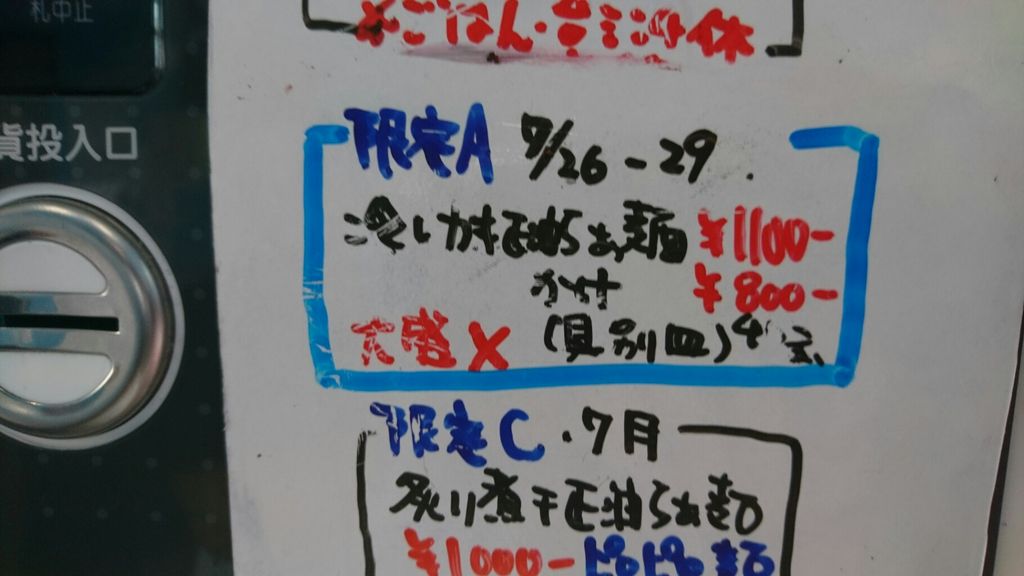 札中止
貨投入口
限定A 7/26-29
冷しかき正油らぁ麺 ¥1100-
かけ ¥800-
大盛× (具別皿)
限定C・7月
炙り煮干正油らぁ麺
¥1000-